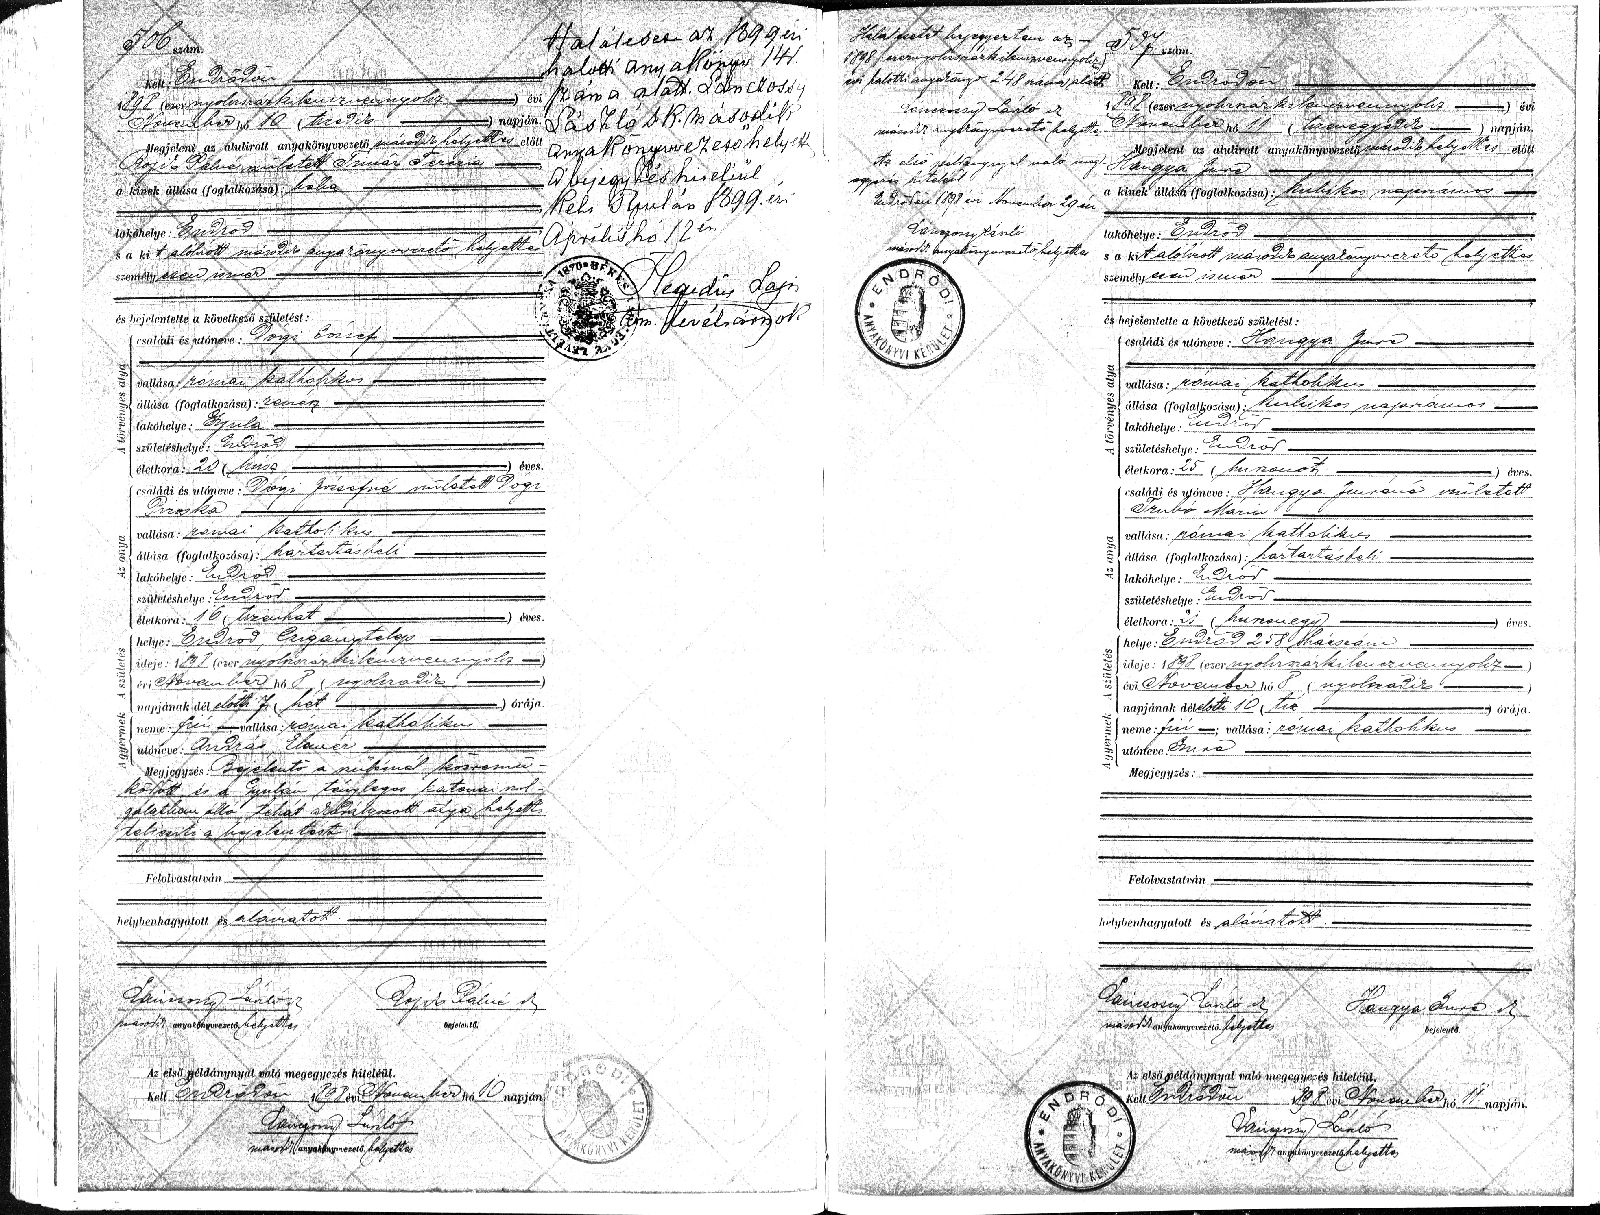 506 szám.
Kelt: Endrődön
1898 (ezernyolcszázkilenczvennyolcz) évi
November hó 10 (tizedik) napján.
Megjelent az alulirott anyakönyvezető második helyettes előtt
a kinek állása (foglalkozása): bába
lakóhelye: Endrőd
s a kit alólirott második anyakönyvvezető helyettes
személyesen ismer
és bejelentette a következő születést:
A törvényes atya
családi és utóneve: Dógi József
vallása: római katholikus
állása (foglalkozása):
lakóhelye: Gyula
születéshelye: Endrőd
életkora: 20 (húsz) éves.
Az anya
családi és utóneve: Dógi Józsefné született Dógi
Piroska
vallása: római katholikus
állása (foglalkozása): háztartásbeli
lakóhelye: Endrőd
születéshelye: Endrőd
életkora: 16 (tizenhat) éves.
A születés
helye: Endrőd, Czigánytelep
ideje: 1898 (ezernyolczszázkilenczvennyolcz)
évi November hó 8 (nyolczadik)
napjának dél előtti 7 (hét) órája.
A gyermek
neme: fiú vallása: római katholikus
utóneve: András, Elemér
Megjegyzés: Bejelentő a szülésnél közremű-
ködött és a Gyulán tényleges katonai szol-
gálatban álló tehát akadályozott atya helyett
teljesíti a bejelentést
Felolvastatván
helybenhagyatott és aláíratott
Lánczossy László
második anyakönyvvezető helyettes
bejelentő.
Az első példánynyal való megegyezés hiteléül.
Kelt Endrődön 1898 évi November hó 10 napján
Lánczossy László
második anyakönyvvezető helyettes
Haláleset az 1899 évi
halotti anyakönyv 141.
száma alatt. Lánczossy
László s. k. második
anyakönyvvezetőhelyett
A bejegyzés hiteléül
Kelt Gyulán 1899. évi
Április hó 12 én
Hegedüs Lajos
vm. levéltárnok
1898 (ezernyolcszázkilenczvennyolcz)
évi halotti anyakönyv 248 száma alatt
Lánczossy László sk
második anyakönyvvezető helyettes
Az első példánynyal való meg-
egyezés hiteléül
Endrődön 1898 évi November 29 én
Lánczossy László
második anyakönyvvezető helyettes
ENDRŐDI
ANYAKÖNYVI KERÜLET
szám.
Kelt: Endrődön
1898 (ezernyolczszázkilenczvennyolcz) évi
November hó 11 (tizenegyedik) napján.
Megjelent az alulirott anyakönyvvezető második helyettes előtt
Hangya Imre
a kinek állása (foglalkozása): kubikos napszámos
lakóhelye: Endrőd
s a kit alólirott második anyakönyvvezető helyettes
személyesen ismer
és bejelentette a következő születést:
A törvényes atya
családi és utóneve: Hangya Imre
vallása: római katholikus
állása (foglalkozása): kubikos napszámos
lakóhelye: Endrőd
születéshelye: Endrőd
életkora: 25 (huszonöt) éves.
Az anya
családi és utóneve: Hangya Imréné született
Mária
vallása: római katholikus
állása (foglalkozása): háztartásbeli
lakóhelye: Endrőd
születéshelye: Endrőd
életkora: 21 (huszonegy) éves.
A születés
helye: Endrőd 258 házszám
ideje: 1898 (ezernyolczszázkilenczvennyolcz)
évi November hó 8 (nyolczadik)
napjának délelőtti 10 (tíz) órája.
A gyermek
neme: fiú; vallása: római katholikus
utóneve: Imre
Megjegyzés:
Felolvastatván
helybenhagyatott és aláíratott
Lánczossy László sk
Hangya Imre sk
második anyakönyvvezető helyettes
bejelentő.
Az első példánynyal való megegyezés hiteléül.
Kelt Endrődön 1898 évi November hó 11 napján.
Lánczossy László
második anyakönyvvezető helyettes
ENDRŐDI
ANYAKÖNYVI KERÜLET